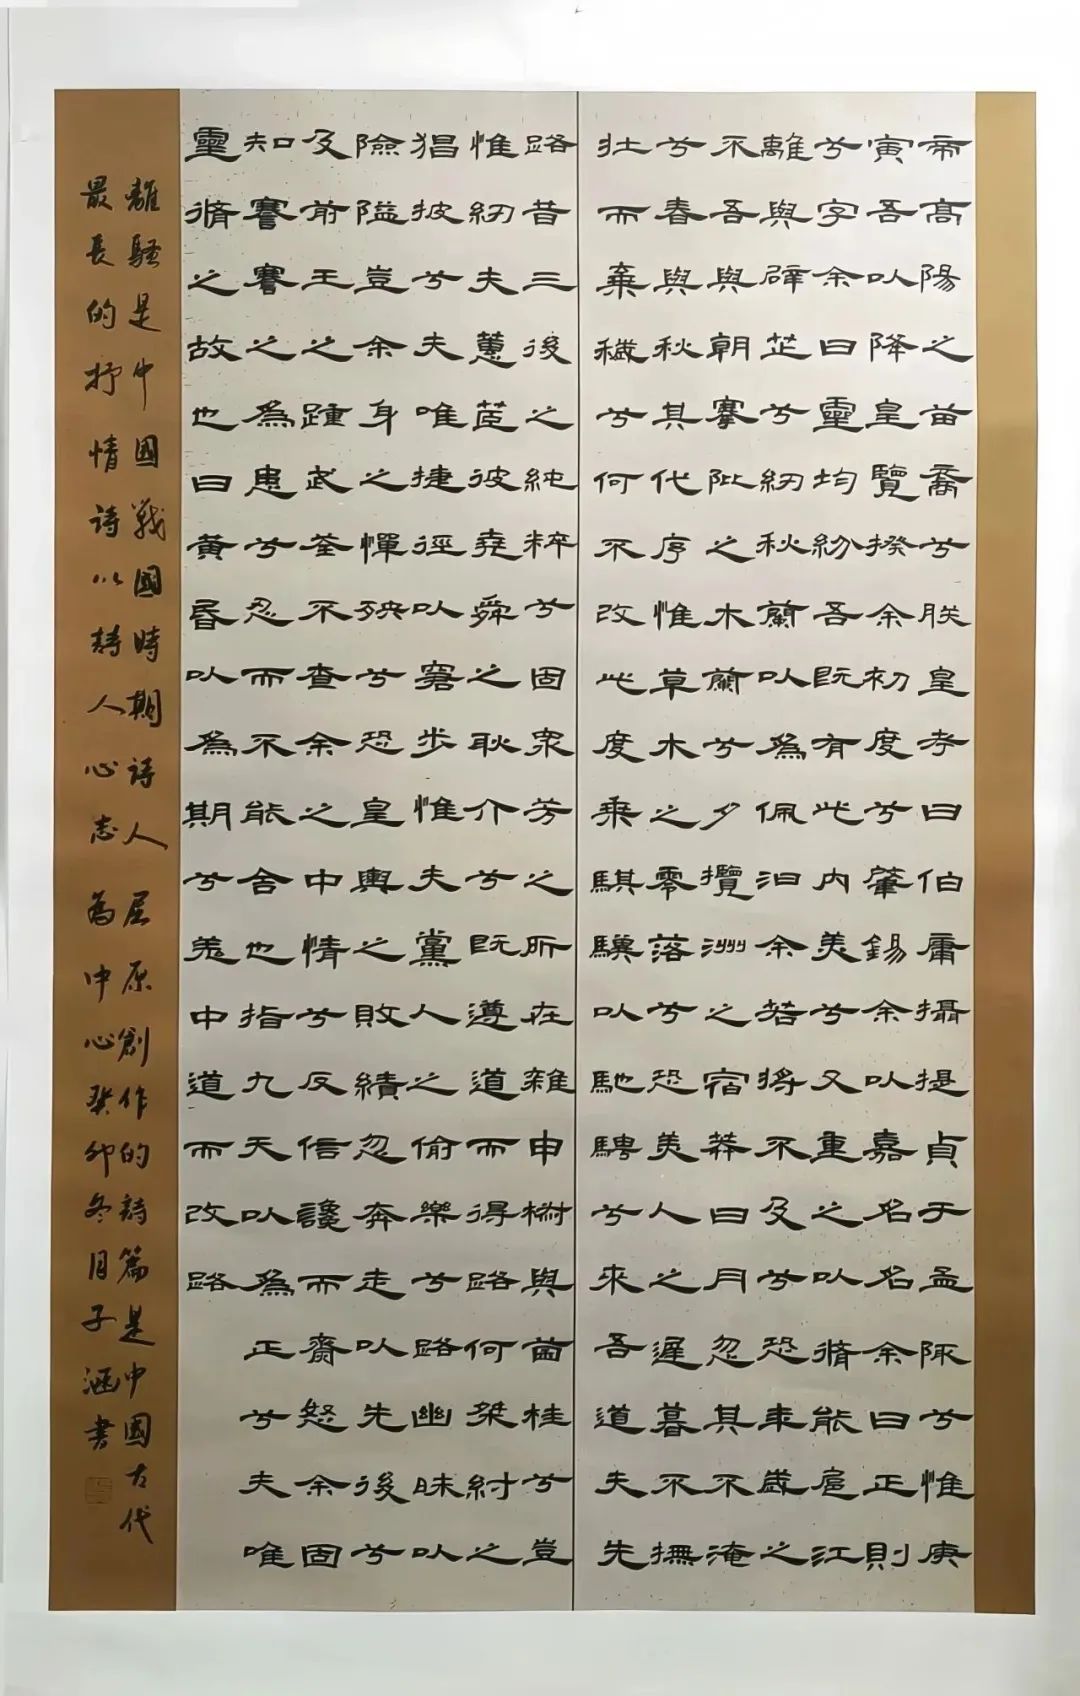 帝高陽之苗裔兮朕皇考曰伯庸攝提貞于孟陬兮惟庚
寅吾以降皇覽揆余初度兮肇錫余以嘉名名余曰正則
兮字余曰靈均紛吾既有此內美兮又重之以脩能扈江
離與辟芷兮紉秋蘭以爲佩汨余若將不及兮恐年歲之
不吾與朝搴阰之木蘭兮夕攬洲之宿莽日月忽其不淹
兮春與秋其代序惟草木之零落兮恐美人之遲暮不撫
壯而棄穢兮何不改此度乘騏驥以馳騁兮來吾道夫先
路昔三後之純粹兮固眾芳之所在雜申椒與菌桂兮豈
惟紉夫蕙茝彼堯舜之耿介兮既遵道而得路何桀紂之
猖披兮夫唯捷徑以窘步惟夫黨人之偷樂兮路幽昧以
險隘豈余身之憚殃兮恐皇輿之敗績忽奔走以先後兮
及前王之踵武荃不查余之中情兮反信讒而齌怒余固
知謇謇之爲患兮忍而不能舍也指九天以爲正兮夫唯
靈脩之故也曰黃昏以爲期兮羌中道而改路
離騷是中國戰國時期詩人屈原創作的詩篇是中國古代
最長的抒情詩以詩人心志為中心癸卯冬月子涵書